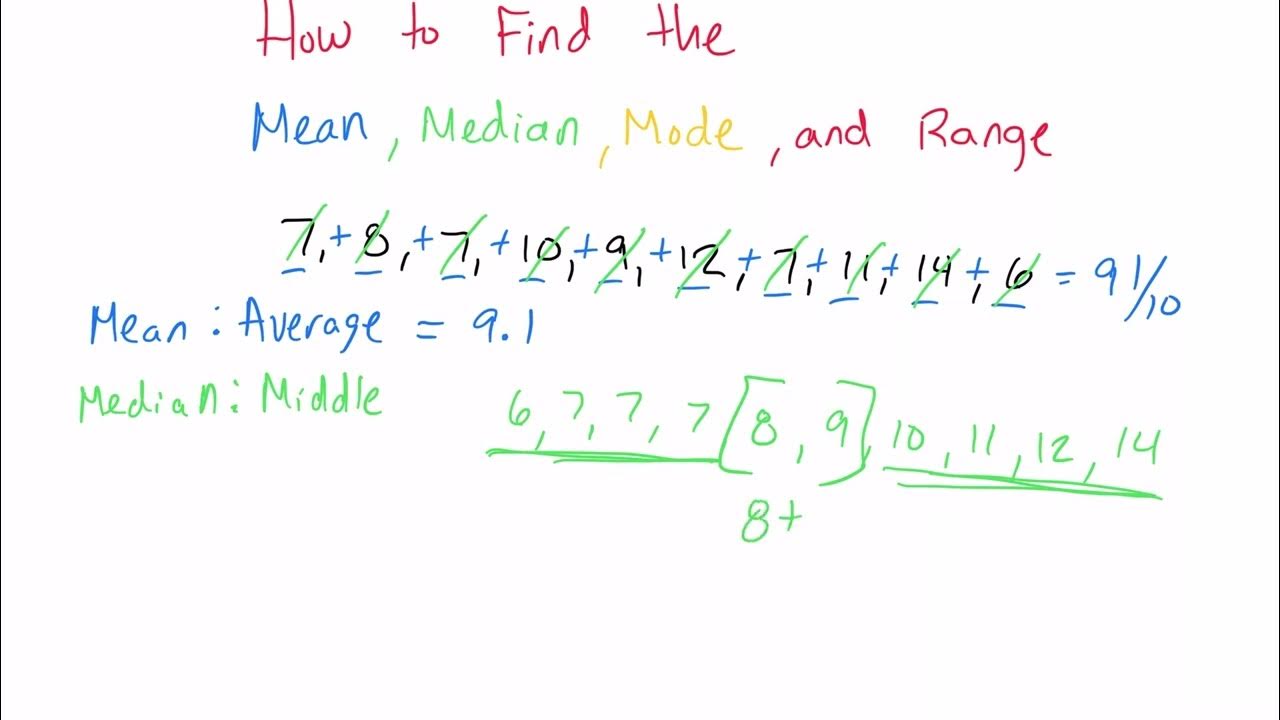 How to Find the
Mean, Median, Mode, and Range
7,+8,+7,+10,+9,+12,+7,+11,+14,+6 = 91/10
Mean: Average = 9.1
Median: Middle
6,7,7,7[8,9],10,11,12,14
8+